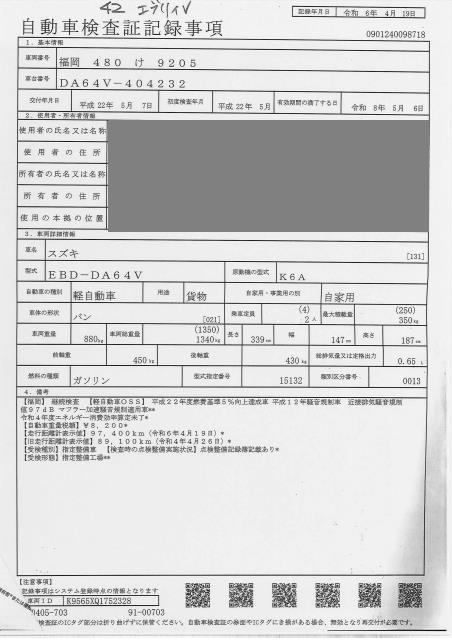 42 エブリィV
記録年月日 令和 6年 4月 19日
自動車検査証記録事項
0901240098718
1. 基本情報
車両番号 福岡 480 け 9205
車台番号 DA64V-404232
交付年月日 平成 22年 5月 7日 初度検査年月 平成 22年 5月 有効期間の満了する日 令和 8年 5月 6日
2. 使用者・所有者情報
使用者の氏名又は名称
使用者の住所
所有者の氏名又は名称
所有者の住所
使用の本拠の位置
3. 車両詳細情報
車名 スズキ [131]
型式 EBD-DA64V 原動機の型式 K6A
自動車の種別 軽自動車 用途 貨物 自家用・事業用の別 自家用
車体の形状 バン [021] 乗車定員 (4) 2人 最大積載量 (250) 350kg
車両重量 880kg 車両総重量 (1350) 1340kg 長さ 339cm 幅 147cm 高さ 187cm
前軸重 450kg 後軸重 430kg 総排気量又は定格出力 0.65 L
燃料の種類 ガソリン 型式指定番号 15132 類別区分番号 0013
4. 備考
【福岡】 継続検査 【軽自動車OSS】 平成22年度燃費基準5%向上達成車 平成12年騒音規制車 近接排気騒音規制
値97dB マフラー加速騒音規制適用車**
令和4年度エネルギー消費効率算定未了*
【自動車重量税額】¥8,200*
【走行距離計表示値】97,400km(令和6年4月19日)*
【旧走行距離計表示値】89,100km(令和4年4月26日)*
【受検種別】指定整備車 【検査時の点検整備実施状況】点検整備記録簿記載あり*
【受検形態】指定整備工場**
【注意事項】
記載事項はシステム登録時点の情報となります
車両ID K9565XQ1752328
0405-703 91-00703
検査証のICタグ部分は折り曲げずに保管ください。自動車検査証の券面やICタグにき損がある場合、無効となり再交付が必要です。